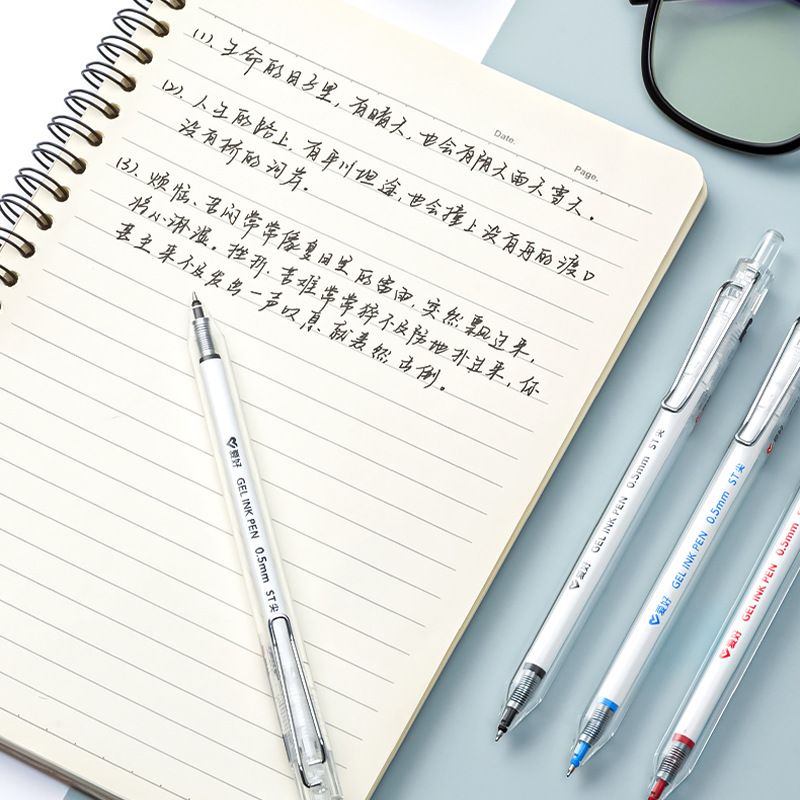 (1)、生命的日子里，有晴天，也会有阴天雨天雪天。
(2)、人生的路上，有平川坦途，也会撞上没有舟的渡口
没有桥的河岸。
(3)、烦恼、苦闷常常像夏日里的雷雨，突然飘过来，
将心淋湿。挫折、苦难常常猝不及防地扑过来，你
甚至来不及发出一声叹息就轰然击倒。
Date.
Page.
爱好 GEL INK PEN 0.5mm ST尖
爱好 GEL INK PEN 0.5mm ST尖
爱好 GEL INK PEN 0.5mm ST尖
爱好 GEL INK PEN 0.5mm